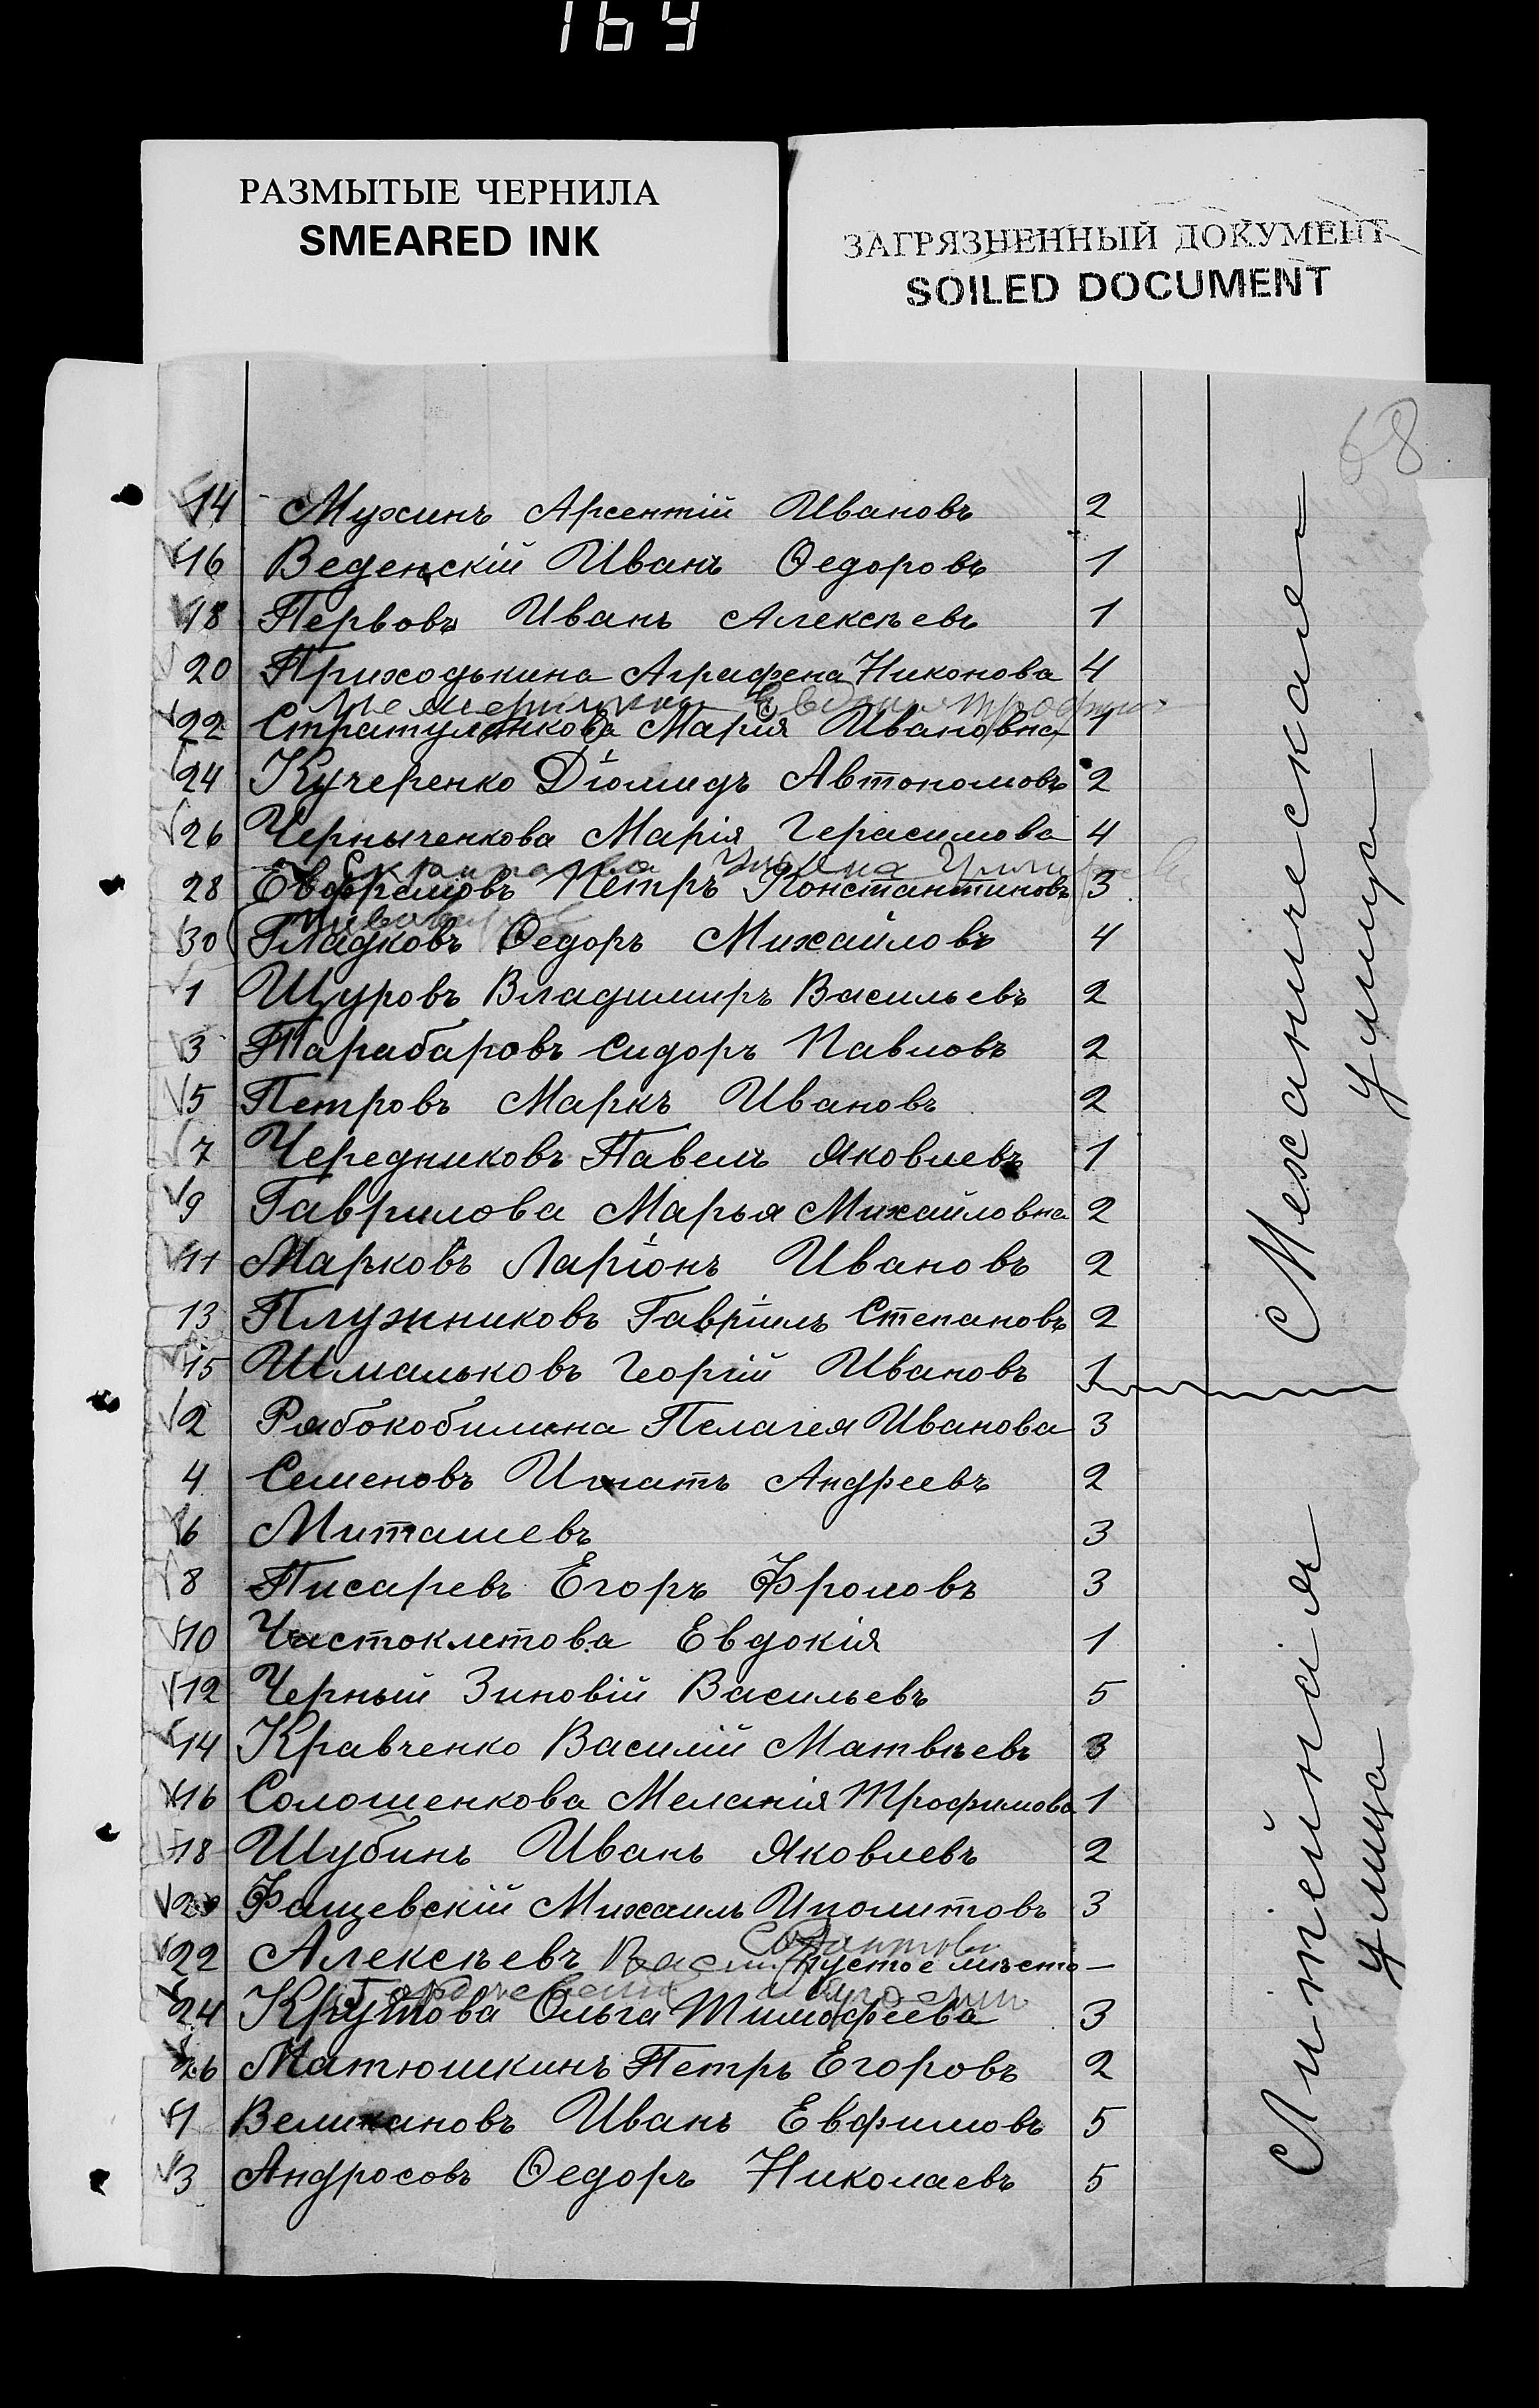 164
РАЗМЫТЫЕ ЧЕРНИЛА
SMEARED INK
ЗАГРЯЗНЕННЫЙ ДОКУМЕНТ
SOILED DOCUMENT
68
14 Мухинъ Арсентій Ивановъ 2
16 Веденскій Иванъ Ѳедоровъ 1
18 Первовъ Иванъ Алексѣевъ 1
20 Приходькина Аграфена Никонова 4
22 Мария Ивановна 1
24 Кучеренко Діомидъ Автономовъ 2
26 Черныченкова Марія Герасимова 4
28 Евфремовъ Петръ Константиновъ 3
30 Гладковъ Ѳедоръ Михайловъ 4
1 Щуровъ Владимиръ Васильевъ 2
3 Тарабаровъ Сидоръ Павловъ 2
5 Петровъ Маркъ Ивановъ 2
7 Чередниковъ Павелъ Яковлевъ 1
9 Гаврилова Марья Михайловна 2
11 Марковъ Ларіонъ Ивановъ 2
13 Плужниковъ Гавріилъ Степановъ 2
15 Шмальковъ Георгій Ивановъ 1
Механическая
улица
2 Рябокобилина Пелагея Иванова 3
4 Семеновъ Игнатъ Андреевъ 2
6 Миташевъ 3
8 Писаревъ Егоръ Фроловъ 3
10 Чистоклетова Евдокія 1
12 Черный Зиновій Васильевъ 5
14 Кравченко Василій Матвѣевъ 3
16 Солошенкова Меланія Трофимова 1
18 Шубинъ Иванъ Яковлевъ 2
20 Фащевскій Михаилъ Иполитовъ 3
22 Алексѣевъ пустое мѣсто —
24 Крутова Ольга Тимофеева 3
26 Матюшкинъ Петръ Егоровъ 2
1 Великановъ Иванъ Евфимовъ 5
3 Андросовъ Ѳедоръ Николаевъ 5
Литейная
улица